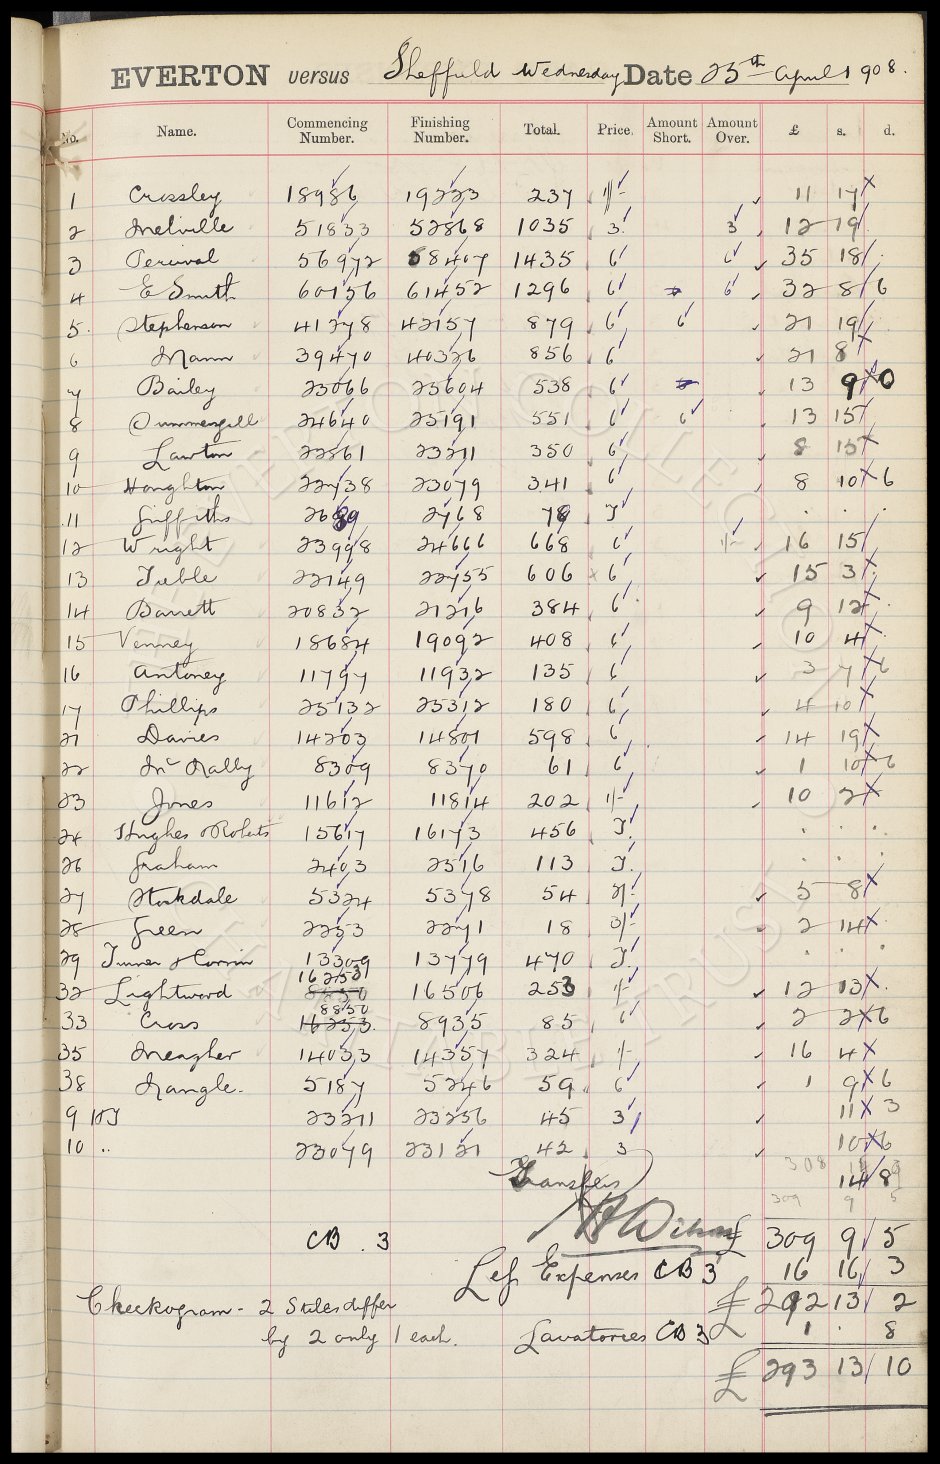 EVERTON versus Sheffield Wednesday Date 25th April 1908.
No. Name. Commencing Number. Finishing Number. Total. Price. Amount Short. Amount Over. £ s. d.
1 Crossley 18986 19223 237 1/- 11 17
2 Melville 51833 52868 1035 3 3 12 19
3 Percival 56972 58407 1435 6 6 35 18
4 E Smith 60156 61452 1296 6 6 32 8 6
5 Stephenson 41278 42157 879 6 6 21 19
6 Mann 39470 40326 856 6 21 8
7 Bailey 25066 25604 538 6 13 9 0
8 Summergill 24640 25191 551 6 6 13 15
9 Lawton 22861 23211 350 6 8 15
10 Houghton 22738 23079 341 6 8 10 6
11 Griffiths 2689 2768 79 T . . .
12 Wright 23998 24666 668 6 1/- 16 15
13 Treble 22149 22755 606 6 15 3
14 Barrett 20832 21216 384 6 9 12
15 Venney 18684 19092 408 6 10 4
16 Antoney 11797 11932 135 6 3 7 6
17 Phillips 25132 25312 180 6 4 10
21 Davies 14203 14801 598 6 14 19
22 Mc Nally 8309 8370 61 6 1 10 6
23 Jones 11612 11814 202 1/- 10 2
24 Hughes & Roberts 15617 16173 456 T . . .
26 Graham 2403 2516 113 T . . .
27 Stockdale 5324 5378 54 2/- 5 8
28 Green 2253 2271 18 3/- 2 14
29 Turner & Corrin 13309 13779 470 T . . .
32 Lightward 16253 16506 253 1/- 12 13
33 Cross 8850 16253 8935 85 6 2 2 6
35 Meagher 14033 14357 324 1/- 16 4
38 Nangle. 5187 5246 59 6 1 9 6
9 HT 23211 23256 45 3 11 3
10 .. 23079 23121 42 3 10 6
Transfers 14 8
309 9 5
CB. 3 £ 309 9 5
Les Expenses CB 3 16 16 3
Checkogram - 2 Stiles differ £ 292 13 2
by 2 only 1 each. Lavatories CB 3 1 . 8
£ 293 13 10
EVERTON COLLECTION
CHARITABLE TRUST